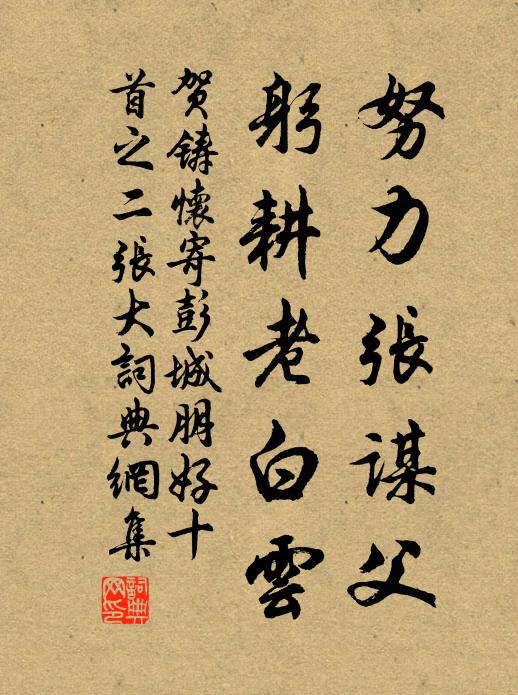 努力張謀父
躬耕老白雲
贺鑄懷寄彭城朋好十
首之二張大詞典網集
詞典网印